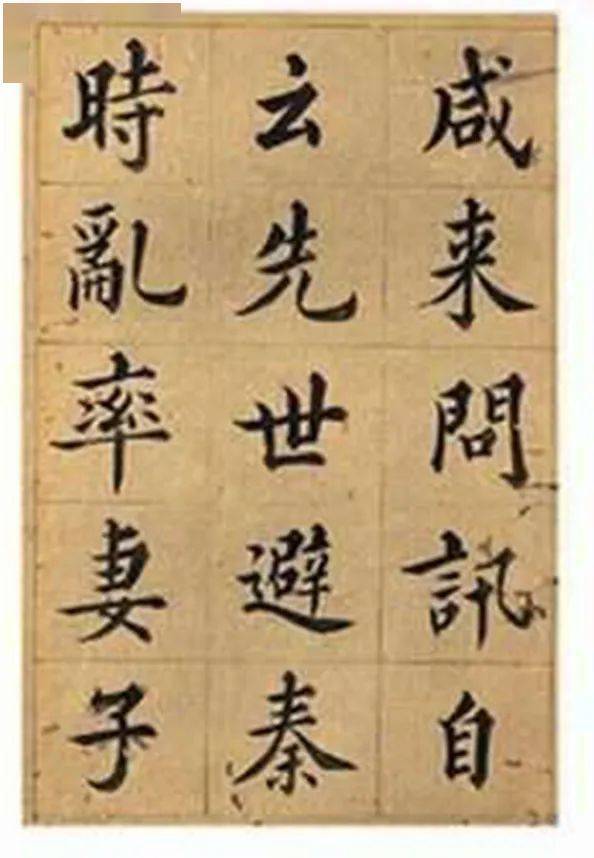 咸来問訊自
云先世避秦
時亂率妻子